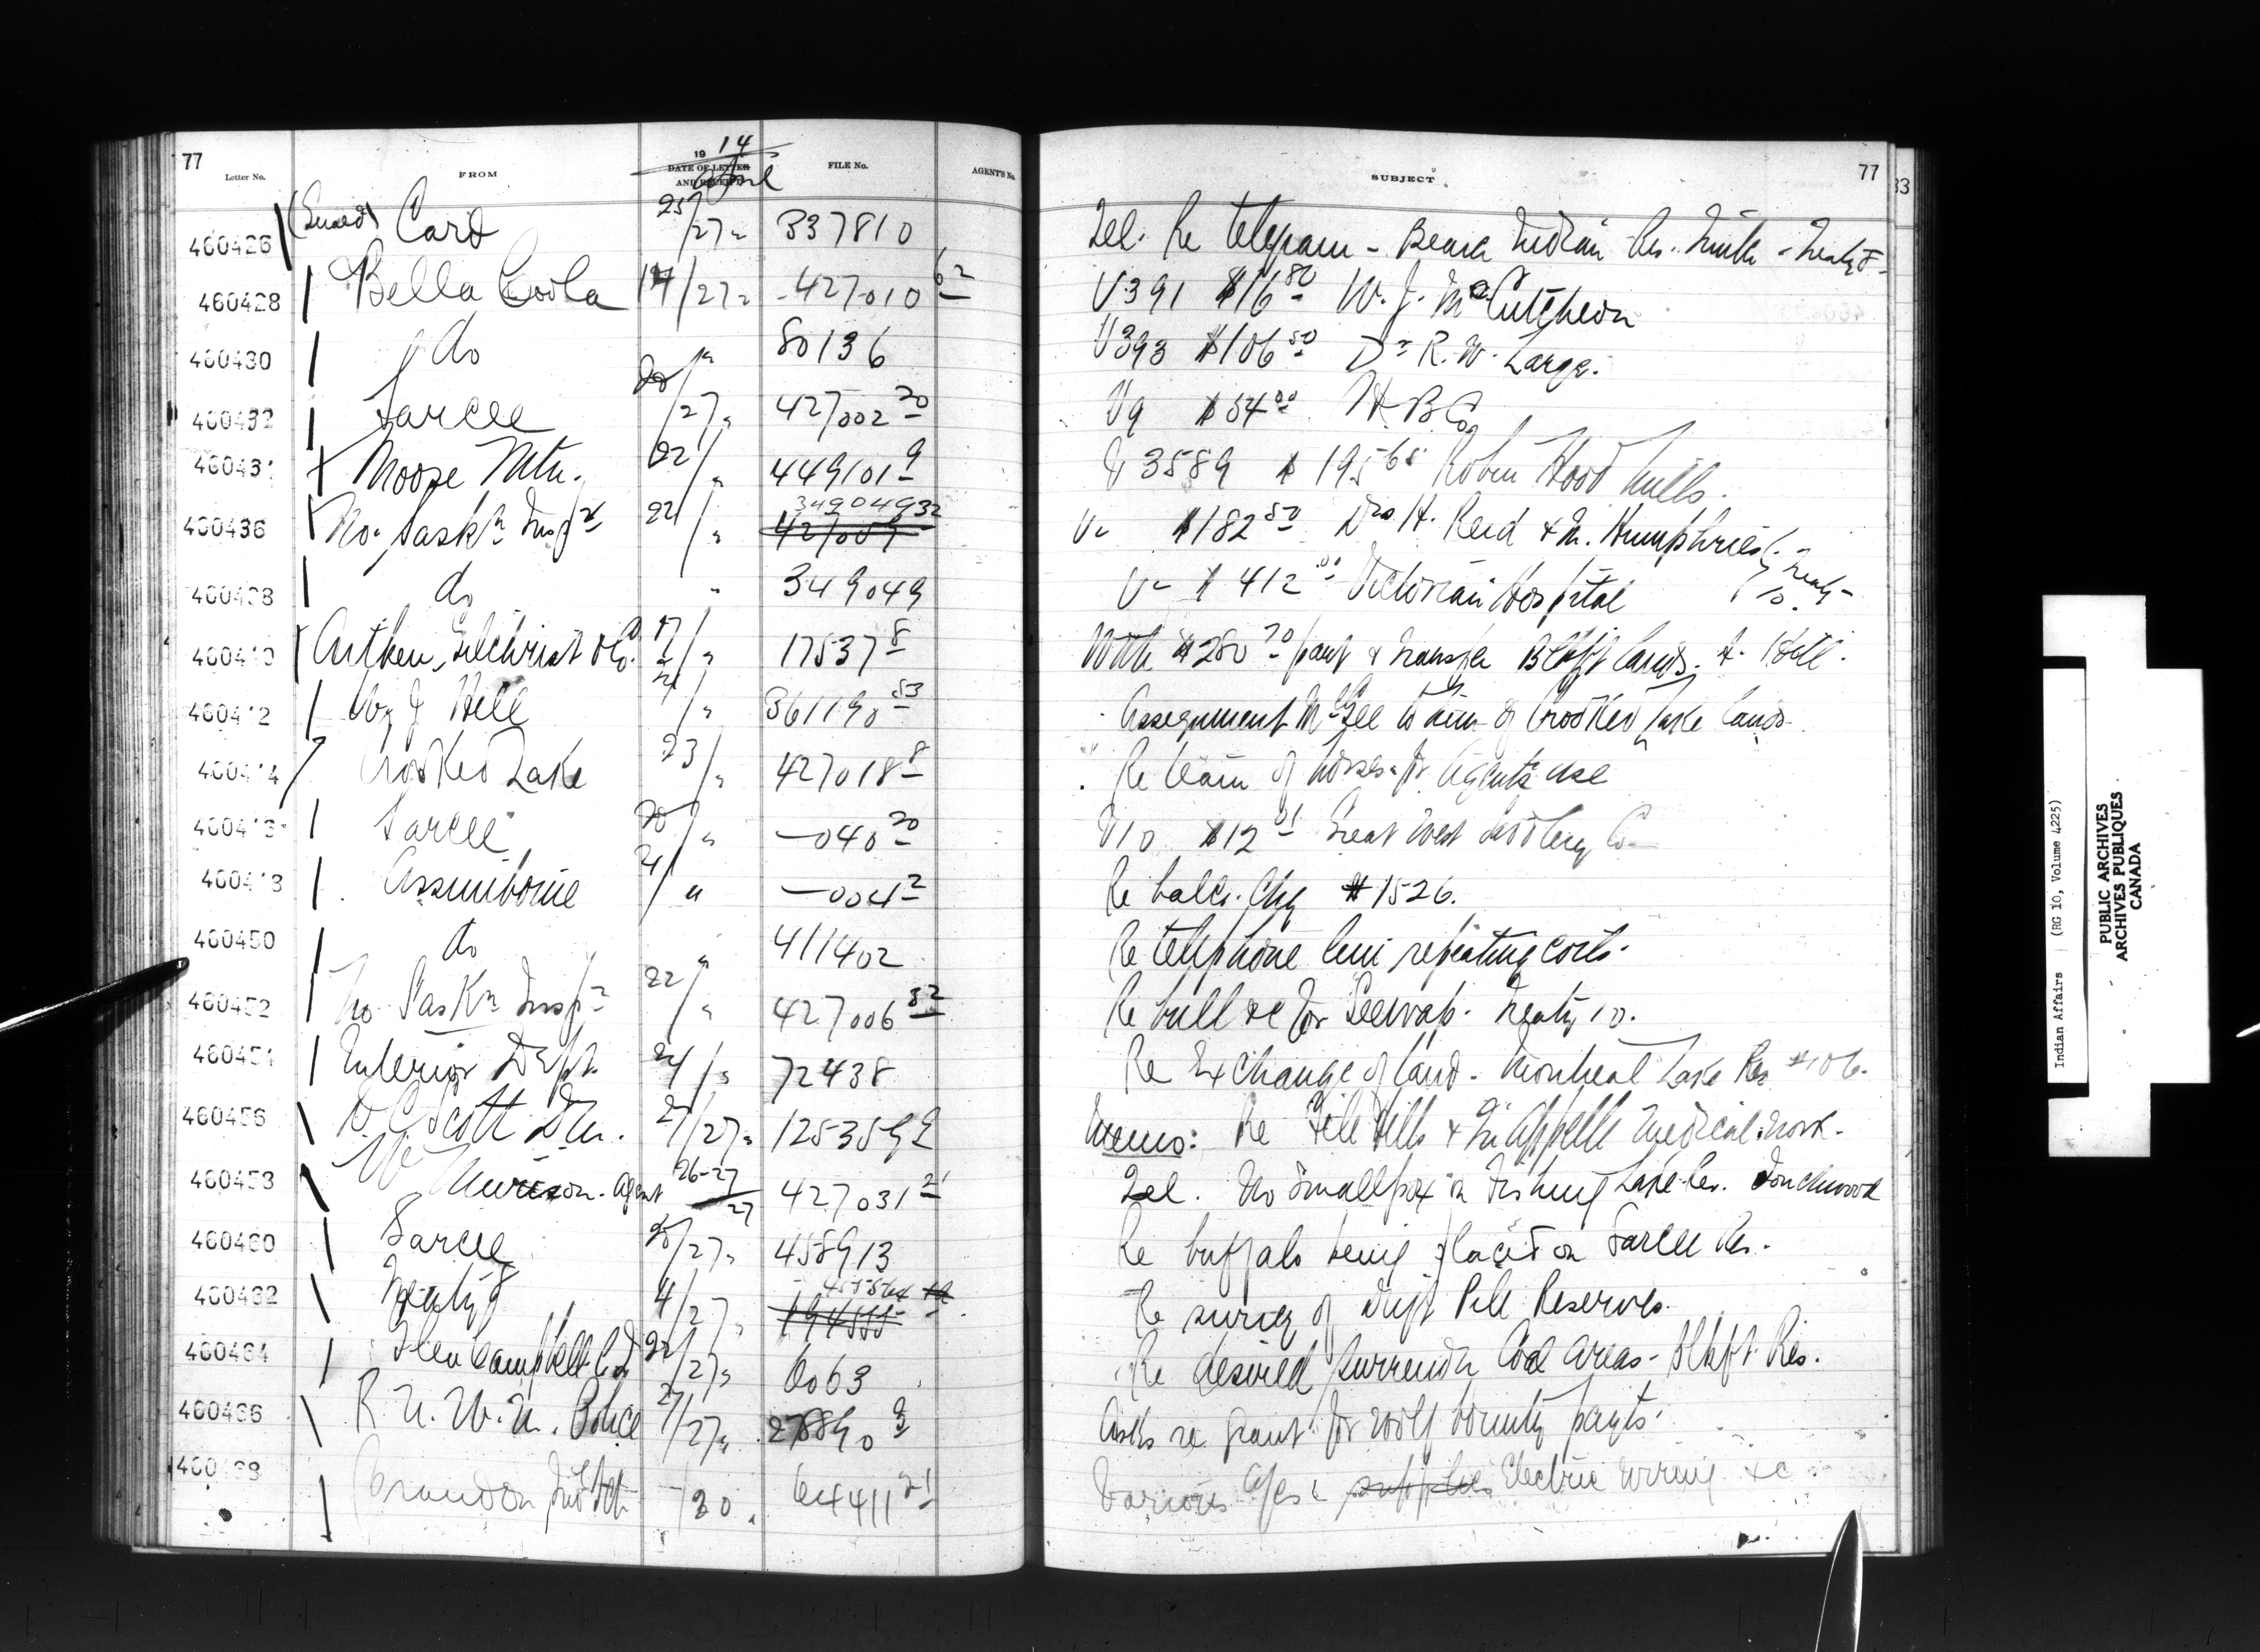 77
Letter No. FROM 1914 DATE OF LETTER AND RECEIPT April FILE No. AGENTS No.
SUBJECT 77
33
460426 Card 25/27 " 337810 Tel. Re telegram - Indian Res.
460428 Bella Coola 14/27 " 427010 62 V391 $16 80 W. J. McCutcheon
460430 do " 80136 V393 $106 50 Dr R. W. Large.
460432 Sarcee 20/27 " 427002 20 V9 $54 00 H B Co
46043 Moose Mtn. 22/ " 449101 9 V3589 $195 65 Robin Hood Mills.
460436 No. Saskn Inspr 22/ " 349049 32 427009 V- $182 50 Drs H. Reid & M. Humphries
460438 do " 349049 V- $412 00 Victorian Hospital Treaty 10.
4604 0 Aitken, Gilchrist & Co. 17/ " 17537 8 With $280 70 payt & transfer Blkft lands.
4604 2 Hill 21/ " 361190 53 Assignment McGee to him of Crooked Lake lands.
4604 4 Crooked Lake 23/ " 427018 8 Re team of horses for Agents use
4604 Sarcee 20/ " —040 20 V10 $12 01 Great West Saddlery Co
4604 Assiniboine 21/ " —004 2 Re balce. Chq #1526.
460450 do " 411402 Re telephone line repeating coils.
460452 No. Saskn Inspr 22/ " 427006 32 Re bull &c for Treaty 10.
460454 Interior Dept. 24/ " 72438 Re Exchange of land - Montreal Lake Res #106.
460456 D C Scott 27/27 " 125359 2 Memo: Re File Hills & Qu'Appelle Medical work.
46045 W Murison - Agent 26-27 27 427031 21 Tel. No Smallpox on Fishing Lake Res. Touchwood
460460 Sarcee 25/27 " 458913 Re buffalo being placed on Sarcee Res.
460462 Treaty 8 4/27 " Re survey of Drift Pile Reserves.
460464 Glen Campbell 22/27 " 6063 Re desired surrender Coal areas - Blkft Res.
460466 R. N. W. M. Police 27/27 " 278890 3 Asks re grant for wolf bounty payts.
4604 8 Brandon Ind Sch /20 " 64411 21 Various a/cs supplies Electric wiring &c
Indian Affairs (RG 10, Volume 4225)
PUBLIC ARCHIVES
ARCHIVES PUBLIQUES
CANADA